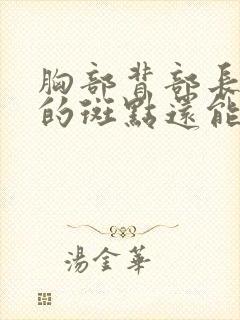 胸部背部長
的斑點還能
湯金華